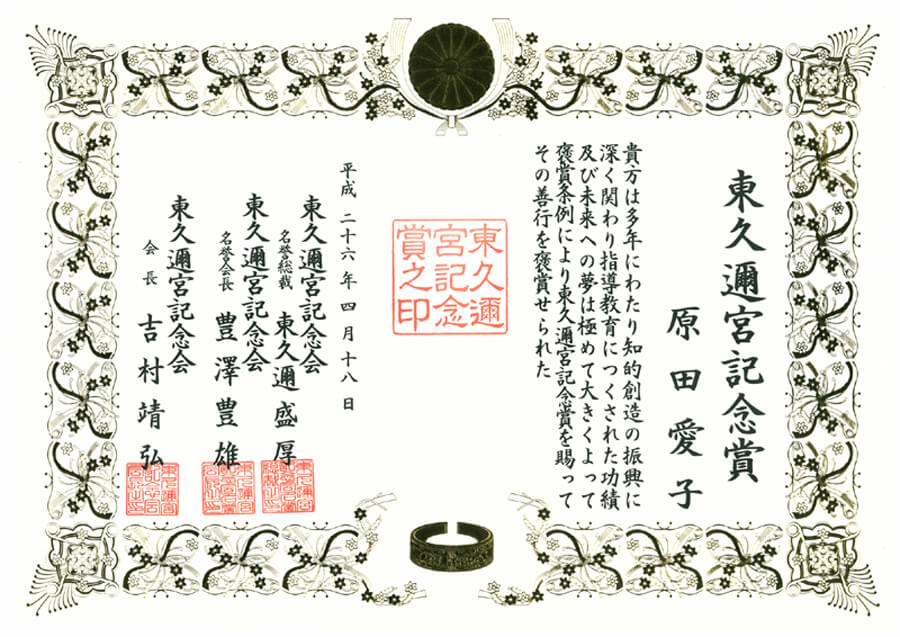 東久邇宮記念賞
原田愛子
貴方は多年にわたり知的創造の振興に
深く関わり指導教育につくされた功績
及び未来への夢は極めて大きくよって
褒賞条例により東久邇宮記念賞を賜って
その善行を褒賞せられた
東久邇
宮記念
賞之印
平成二十六年四月十八日
東久邇宮記念会
名誉総裁 東久邇盛厚
東久邇宮記念会
名誉会長 豊澤豊雄
東久邇宮記念会
会長 吉村靖弘